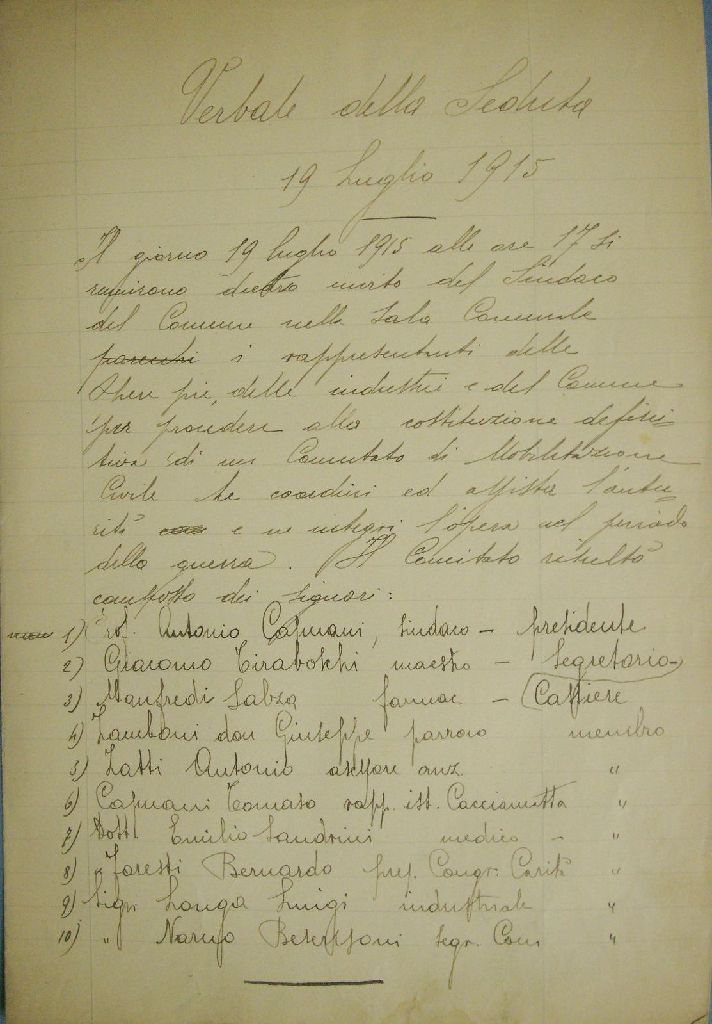 Verbale della Seduta
19 Luglio 1915
Il giorno 19 luglio 1915 alle ore 17 si
riunirono dietro invito del Sindaco
del Comune nella Sala Comunale
parecchi i rappresentanti delle
Opere pie, delle industrie e del Comune
per procedere alla costituzione defini-
tiva di un Comitato di Mobilitazione
Civile che coordini ed assista l'auto-
rità e ne integri l'opera nel periodo
della guerra. Il Comitato risultò
composto dei signori:
1) Prof. Antonio Capuani, sindaco - presidente
2) Giacomo Tiraboschi maestro - Segretario
3) Manfredi farmac - Cassiere
4) Zamboni don Giuseppe parroco membro
5) Zatti Antonio assessore anz. "
6) Capuani Tomaso rapp. ist. Cacciamatta "
7) Dott. Emilio Sandrini medico - "
8) " Foresti Bernardo pres. Congr. Carità "
9) Sigr. Longa Luigi industriale "
10) " Narno segr. Com "